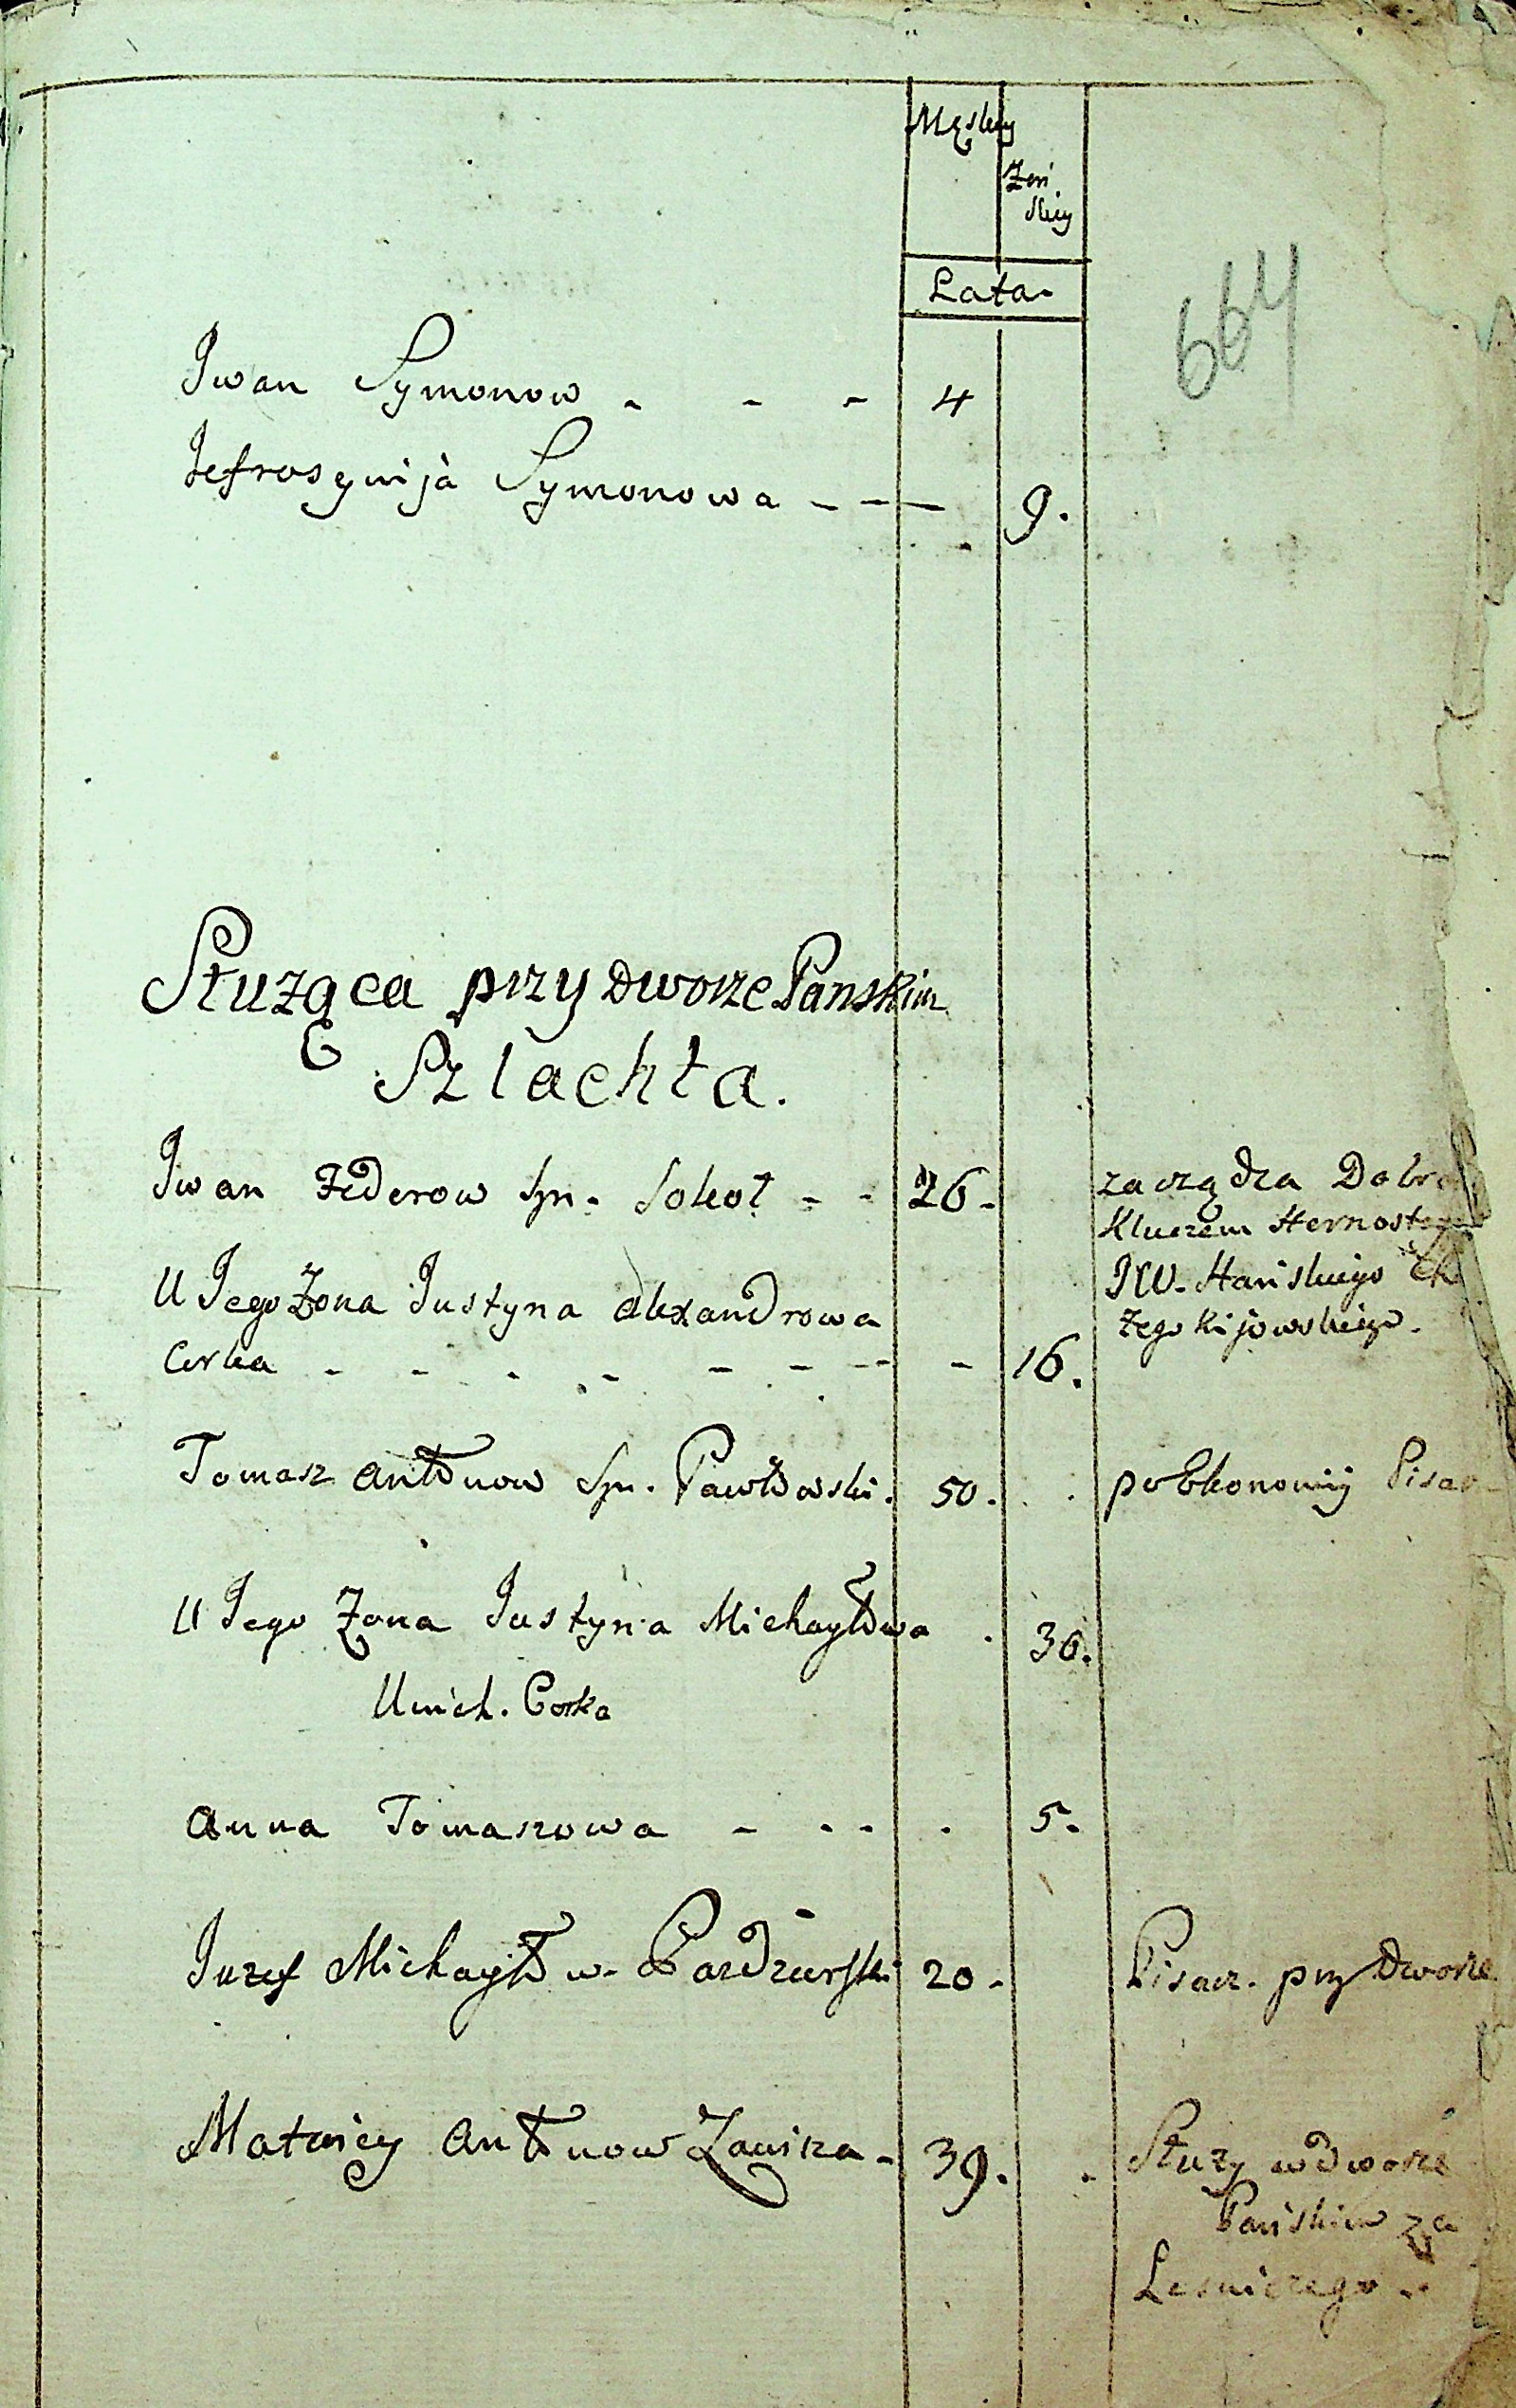 Męsky
Żeń
skiy
Lata
664
Iwan Symonow - - - 4
Jefrosynija Symonowa - - — 9.
Służąca przy Dworze Panskim
Szlachta.
Iwan Federow Syn. Sokoł - - 26 -
zarządza Dobra
Kluczem Hernost
JW. Hańskiego Ch
żego Kijowskiego.
U Jego Żona Justyna Alexandrowa
Corka - - - - - - - - 16.
Tomasz Antonow Syn. Pawłowski. 50. po Ekonomij Pisar
U Jego Żona Justyna Michayłowa . 36.
Unich. Corka
Anna Tomaszowa - . . . 5.
Iuzef Michayłow - 20 - Pisarz. przy Dworze
Matwiey Antonow Zawisza - 39. . Służy w Dworze
Pańskim za
Lesniczego . .